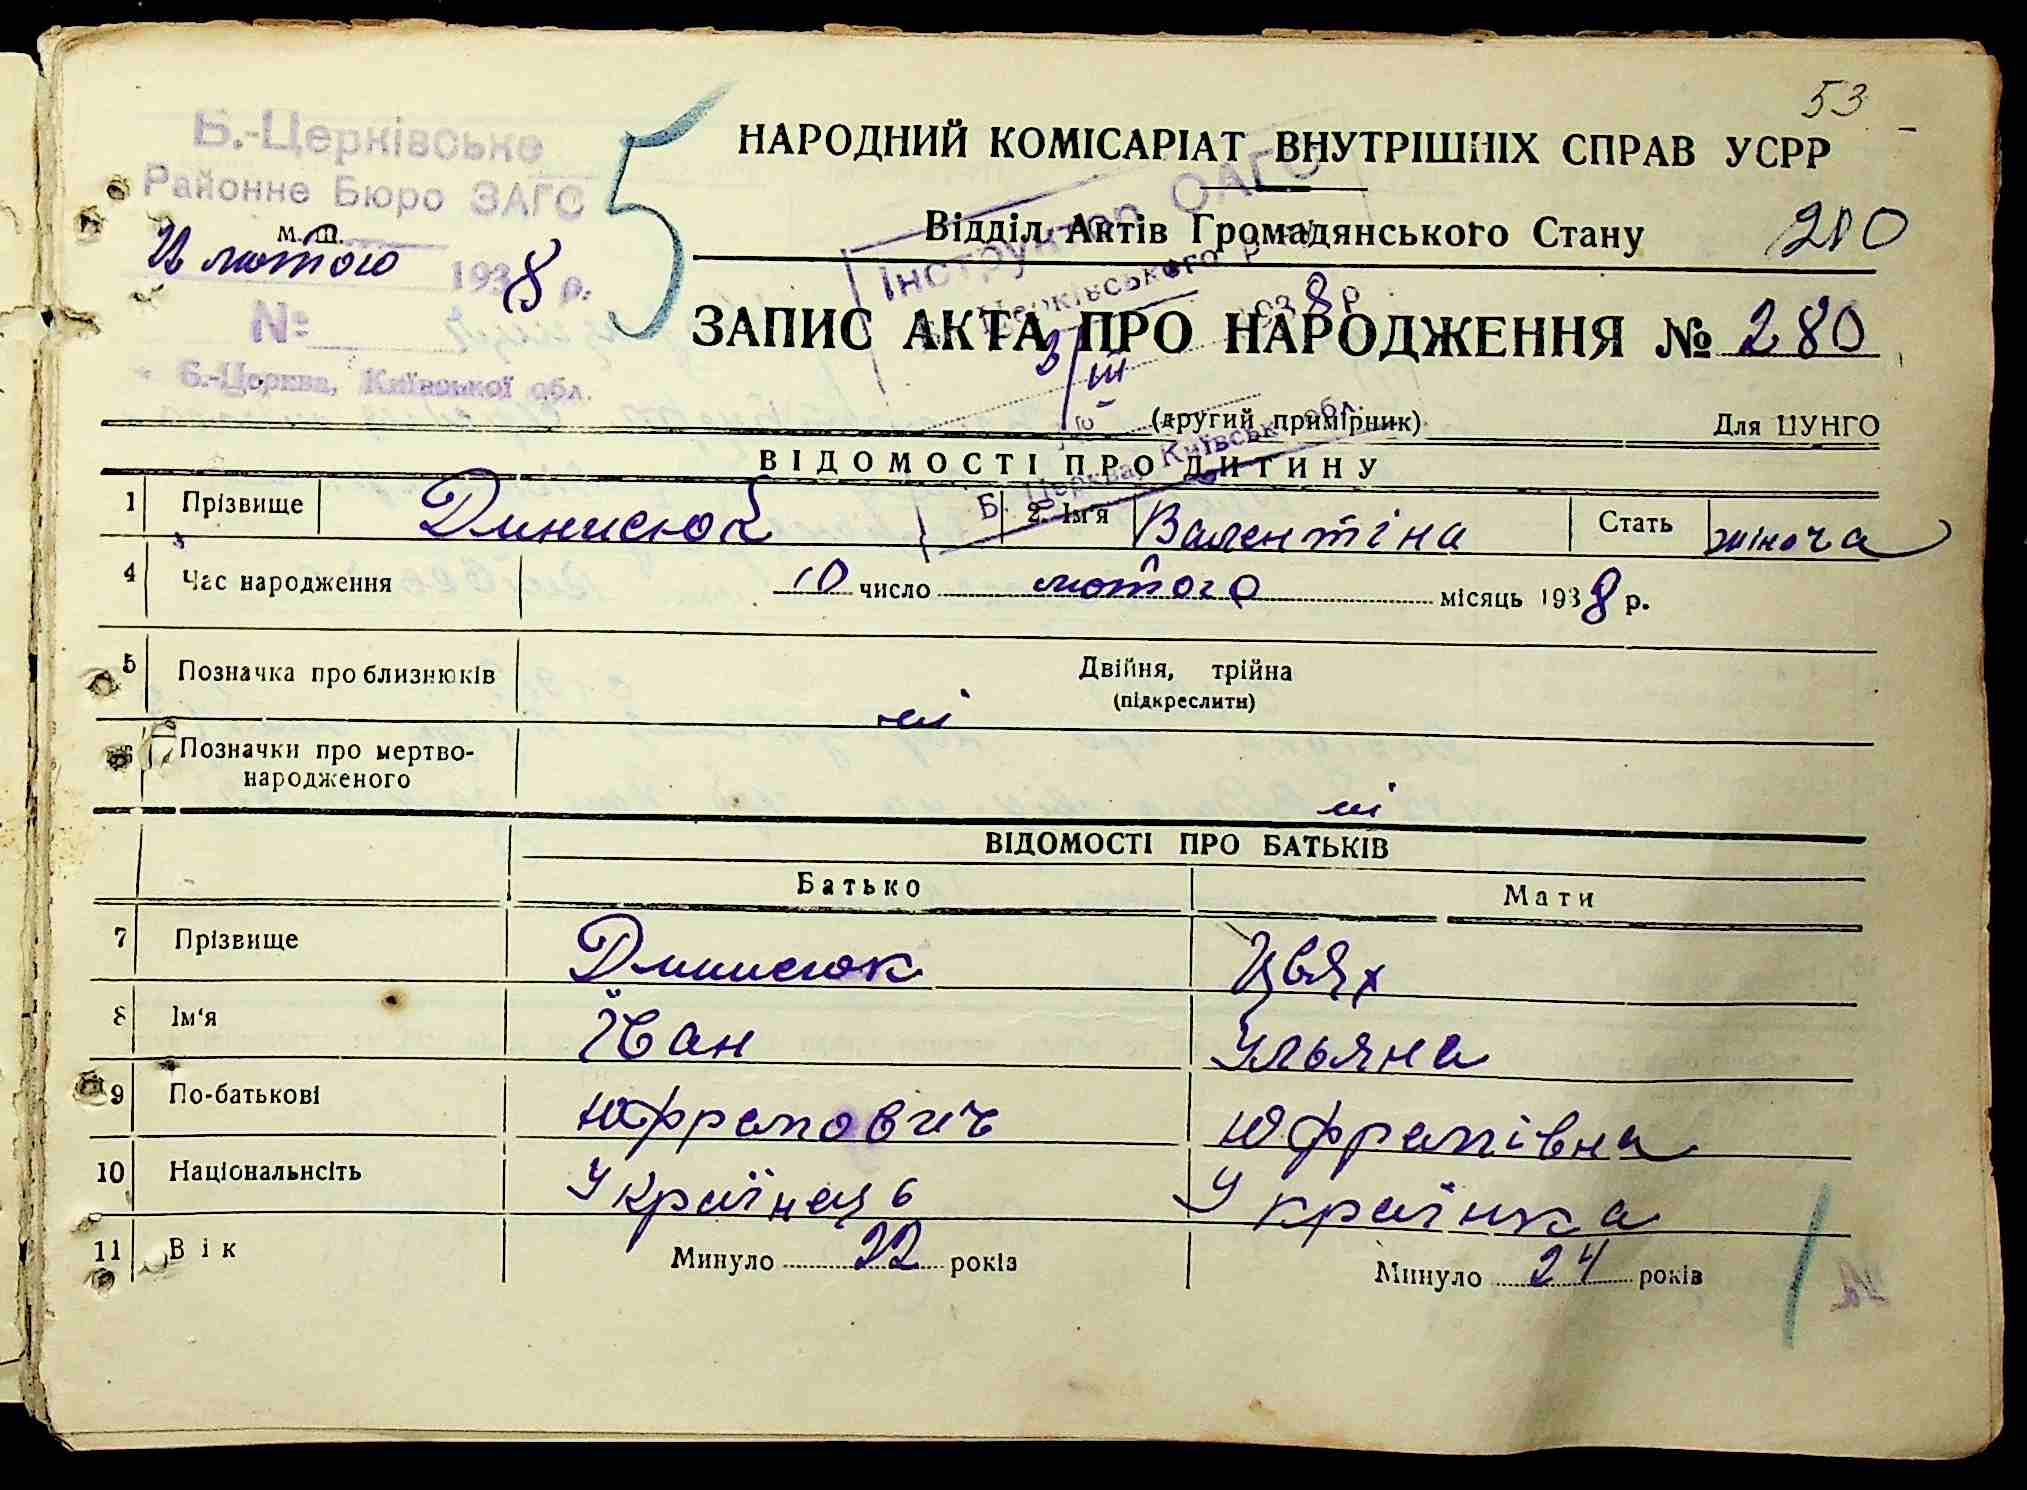 53
Б.-Церківське
Районне Бюро ЗАГС
м. п.
лютого 1938 р.
№
Б.-Церква, Київської обл.
5
НАРОДНИЙ КОМІСАРІАТ ВНУТРІШНІХ СПРАВ УСРР
Відділ Актів Громадянського Стану
280
Інструктор ОАГС
Церківського
1938 р.
3/III
Б. Церква, Київськ. обл.
ЗАПИС АКТА ПРО НАРОДЖЕННЯ № 280
(другий примірник) Для ЦУНГО
ВІДОМОСТІ ПРО ДИТИНУ
1 Прізвище Динисюк 2. Ім'я Валентіна 3 Стать жіноча
4 Час народження 10 число лютого місяць 1938 р.
5 Позначка про близнюків Двійня, трійна
(підкреслити)
ні
6 Позначки про мертво-
народженого ні
ВІДОМОСТІ ПРО БАТЬКІВ
Батько Мати
7 Прізвище Динисюк Цвях
8 Ім'я Їван Ульяна
9 По-батькові Юфрепович Юфрепівна
10 Національнсіть Українець Українка
11 Вік Минуло 22 років Минуло 24 років